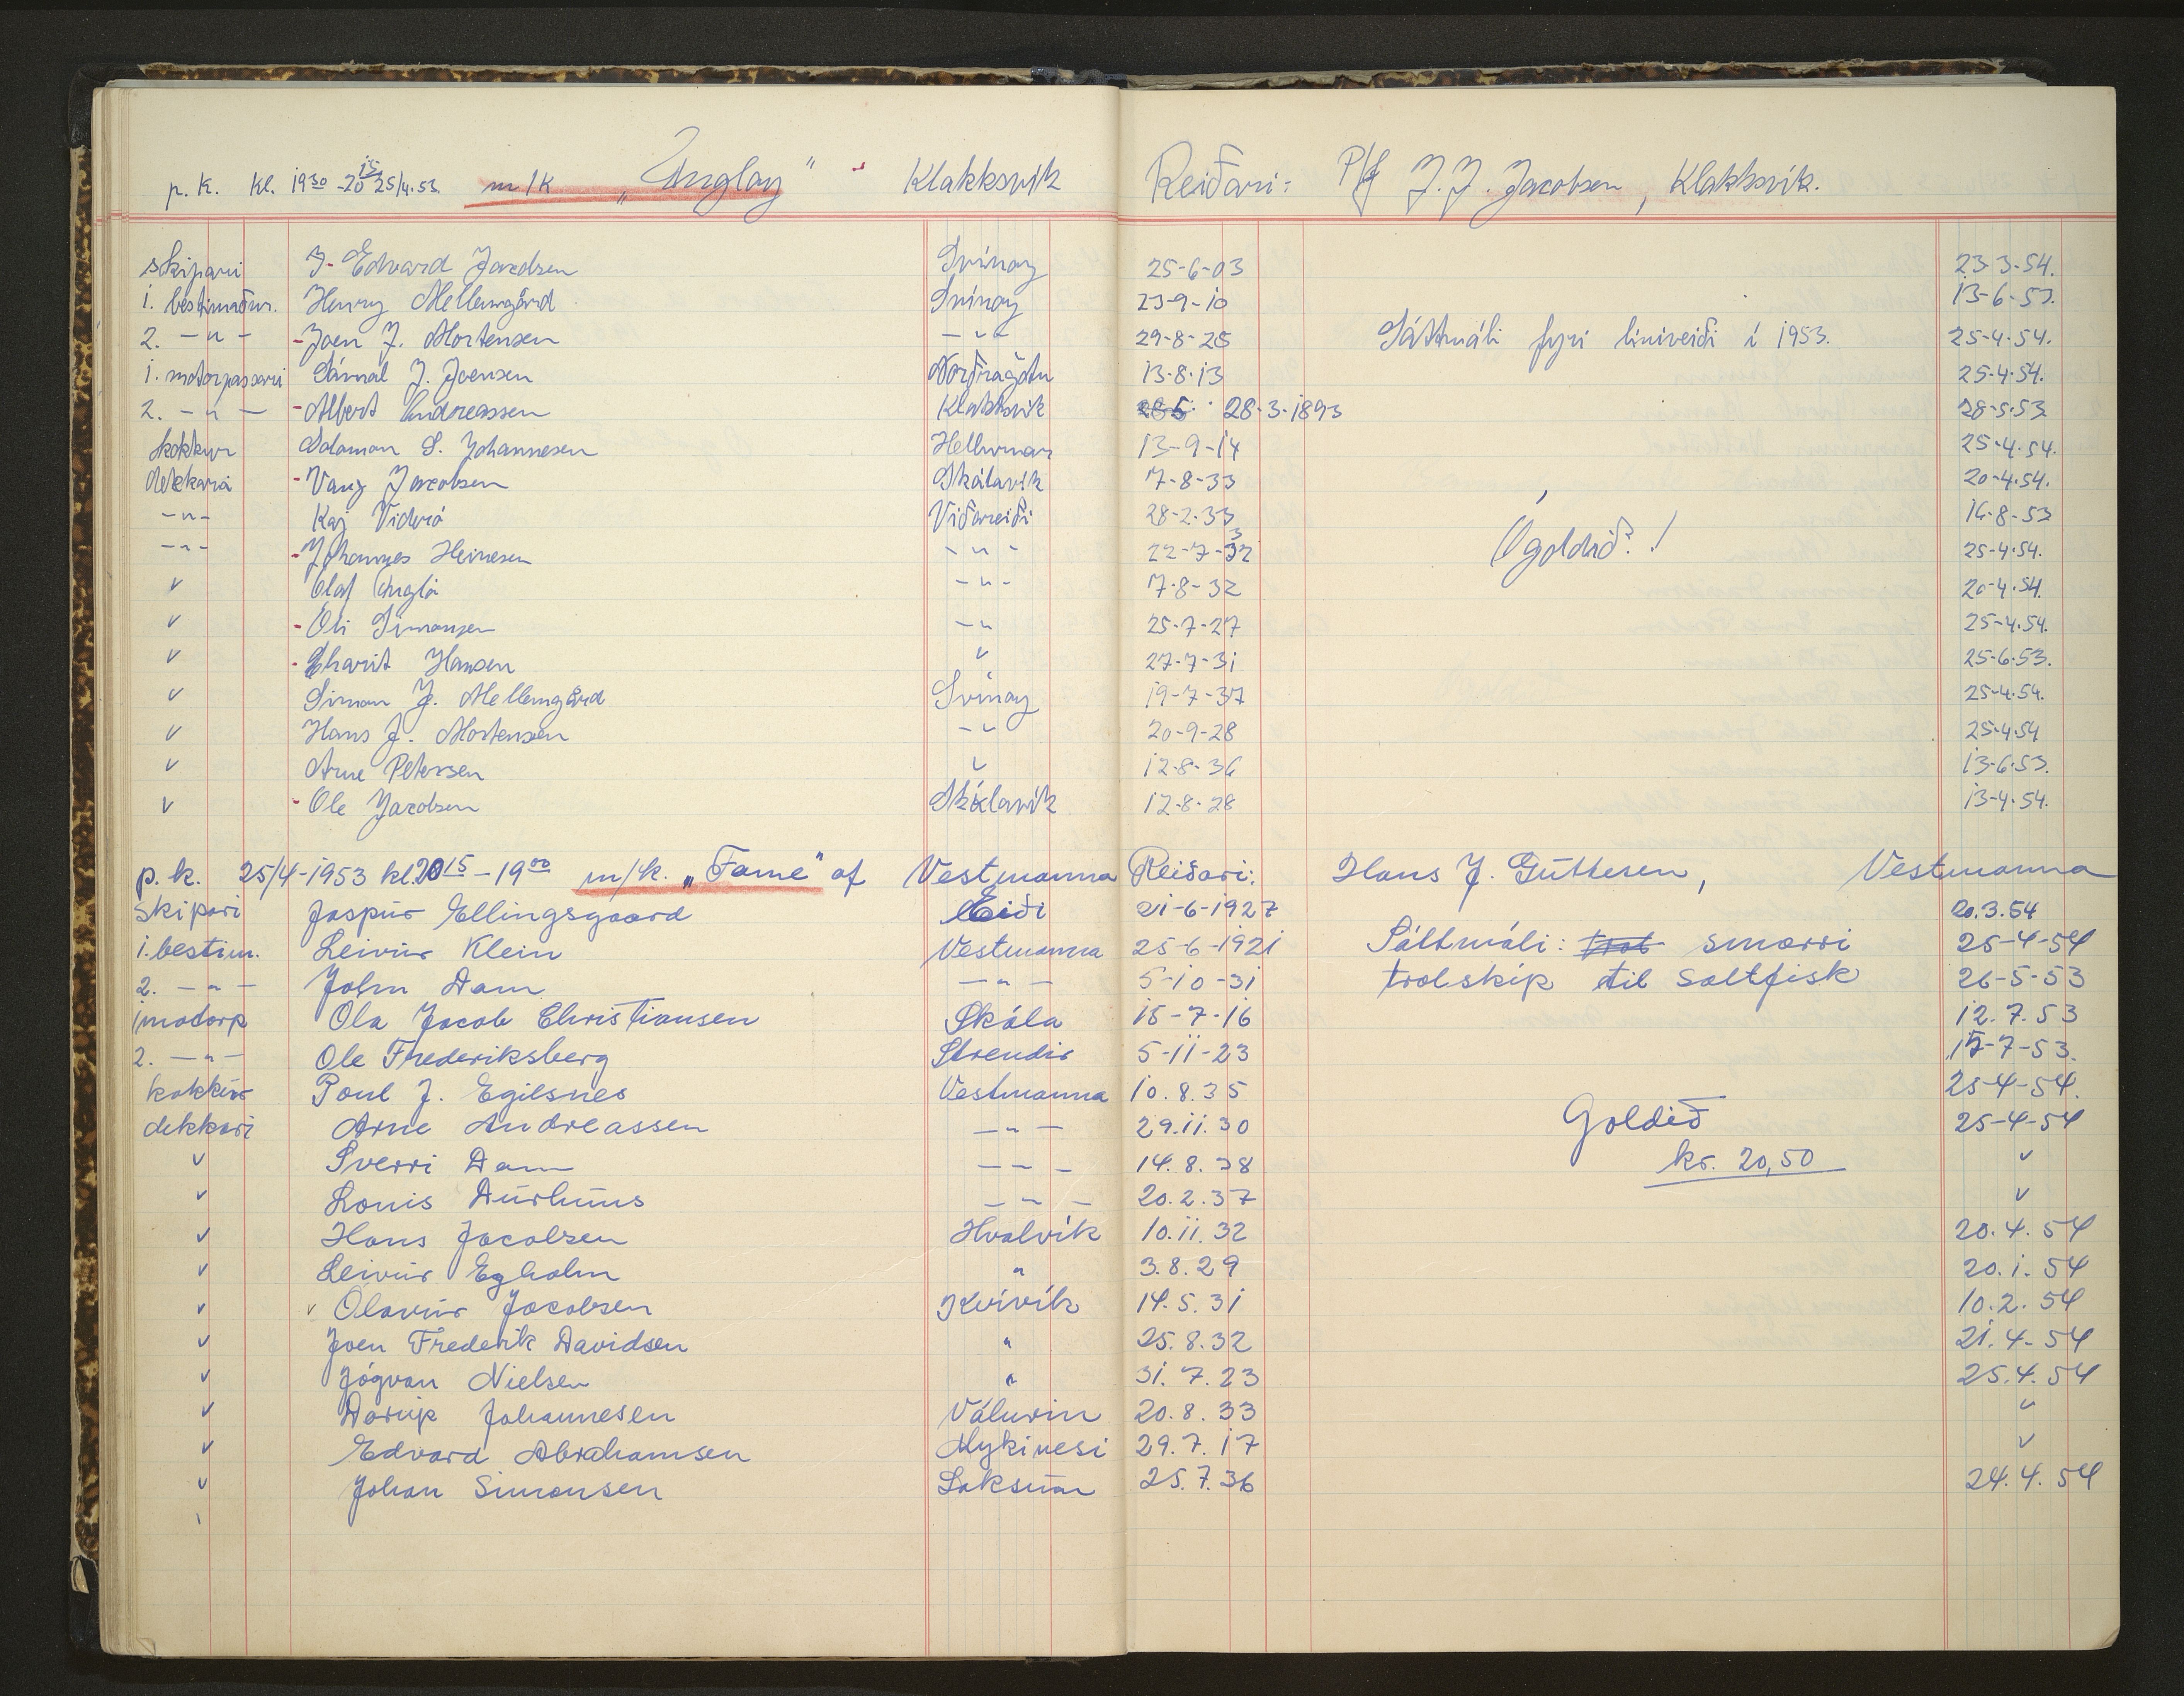 p. k. kl. 19 30 - 20 15 25/4.53. m/k „Anglay" Klakksvík Reiðari: P/f J. J. Jacobsen, Klakksvík.
skipari J. Edvard Jacobsen Svínoy 25-6-03 23.3.54.
1. bestimaður. Henry Mellemgård Svínoy 23-9-10 13-6-53.
2. -"- - Joen J. Mortensen -"- 29-8-25 Sáttmáli fyri línuveiði í 1953. 25-4-54.
1. motorpassari Sámal J. Joensen Norðragøtu 13-8-13 25-4-54.
2. -"- - Albert Andreassen Klakksvík 28-3-1893 28-5-53
kokkur Salomon S. Johannesen Hellurnar 13-9-14 25-4-54.
dekkari - Vang Jacobsen Skálavík 7-8-33 20-4-54.
-"- Kaj Viderø Viðareiði 28-2-33 16-8-53
-"- - Johannes Heinesen -"- 22-7-32 Ógoldið! 25-4-54.
v Olaf -"- 7-8-32 20-4-54.
v - Óli Simonsen -"- 25-7-27 25-4-54.
v - Hansen v 27-7-31 25-6-53.
v Simon J. Mellemgård Svínoy 19-7-37 25-4-54.
v Hans J. Mortensen -"- 20-9-28 25-4-54
v Arne Petersen v 12-8-36 13-6-53.
v - Ole Jacobsen Skálavík 12-8-28 13-4-54.
p. k. 25/4-1953 kl. 20 15 - 19 00 m/k. „Fame" af Vestmanna Reiðari: Hans J. Gúttesen, Vestmanna
skipari Jaspur Ellingsgaard Eiði 21-6-1927 20.3.54
1. bestim. Leivur Klein Vestmanna 25-6-1921 Sáttmáli: trol smærri 25-4-54
2. -"- John Dam -"- 5-10-31 trolskip til saltfisk 26-5-53
1 motorp Ola Jacob Christiansen Skála 15-7-16 12.7.53
2. -"- Ole Frederiksberg Strendir 5-11-23 15-7-53.
kokkur Poul J. Egilsnes Vestmanna 10.8.35 25-4-54.
dekkari Arne Andreassen -"- 29.11.30 Goldið 25-4-54
v Sverri Dam -"- 14.8.38 kr. 20,50 v
v Louis Durhuus -"- 20.2.37 v
v Hans Jacobsen Hvalvík 10.11.32 20.4.54
v Leivur Egholm " 3.8.29 20.1.54
v v Ólavur Jacobsen Kvívík 14.5.31 10.2.54
v Joen Frederik Davidsen " 25.8.32 21.4-54
v Jógvan Nielsen " 31.7.23 25.4.54
v Johannesen Válurin 20.8.33 v
v Edvard Abrahamsen Mykinesi 29.7.17 v
v Johan Simonsen Saksun 25.7.36 24.4.54